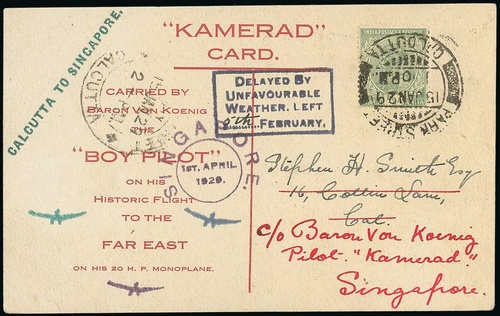 CALCUTTA TO SINGAPORE.
"KAMERAD"
CARD.
CARRIED BY
BARON VON KOENIG
THE
"BOY PILOT"
ON HIS
HISTORIC FLIGHT
TO THE
FAR EAST
ON HIS 20 H. P. MONOPLANE.
CALCUTTA
DELAYED BY
UNFAVOURABLE
WEATHER. LEFT
8th FEBRUARY.
SINGAPORE.
1ST. APRIL
1929.
PARK STREET
CALCUTTA
15 JAN 29
Stephen H. Smith Esq
16, Collin Lane,
Cal.
c/o Baron Von Koenig
Pilot. "Kamerad."
Singapore.